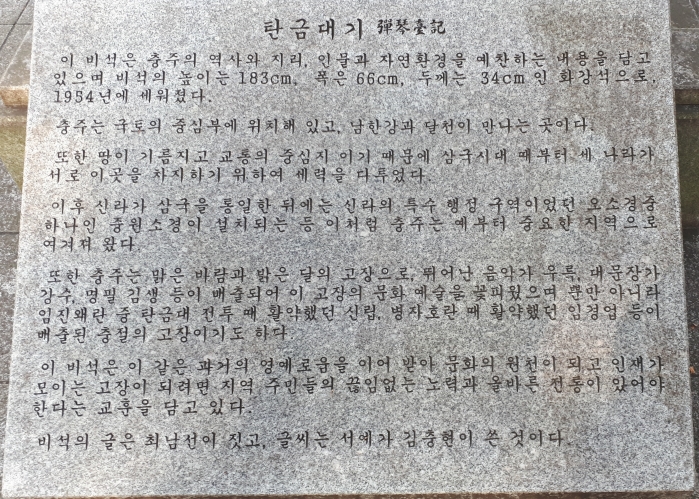 탄금대기 彈琴臺記
이 비석은 충주의 역사와 지리, 인물과 자연환경을 예찬하는 내용을 담고
있으며 비석의 높이는 183cm, 폭은 66cm, 두께는 34cm 인 화강석으로,
1954년에 세워졌다.
충주는 국토의 중심부에 위치해 있고, 남한강과 달천이 만나는 곳이다.
또한 땅이 기름지고 교통의 중심지 이기 때문에 삼국시대 때부터 세 나라가
서로 이곳을 차지하기 위하여 세력을 다투었다.
이후 신라가 삼국을 통일한 뒤에는 신라의 특수 행정 구역이었던 오소경중
하나인 중원소경이 설치되는 등 이처럼 충주는 예부터 중요한 지역으로
여겨져 왔다.
또한 충주는 맑은 바람과 밝은 달의 고장으로, 뛰어난 음악가 우륵, 대문장가
강수, 명필 김생 등이 배출되어 이 고장의 문화 예술을 꽃피웠으며 뿐만 아니라
임진왜란 중 탄금대 전투 때 활약했던 신립, 병자호란 때 활약했던 임경업 등이
배출된 충절의 고장이기도 하다.
이 비석은 이 같은 과거의 영예로움을 이어 받아 문화의 원천이 되고 인재가
모이는 고장이 되려면 지역 주민들의 끊임없는 노력과 올바른 전통이 있어야
한다는 교훈을 담고 있다.
비석의 글은 최남선이 짓고, 글씨는 서예가 김충현이 쓴 것이다.